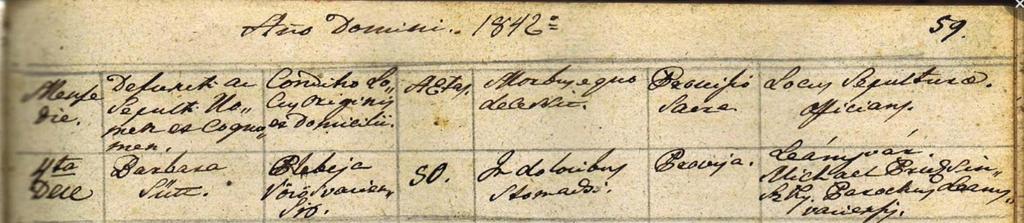 Año Domini. 1842º
59.
Mense
die.
Defuncti ac
Sepulti No„
men et Cogno„
men.
Conditio Lo„
cus Originis
et Domicilii.
Aetas.
Morbus e quo
decessit.
Provisio
Sacra
Locus Sepulturae.
officians.
4ta
Dece
Barbara
Plebeja
Vörösvarien„
sis.
50.
In doloribus
Stomachi.
Provisa.
Leányvár.
Michael
Parochus Leany„
variensis.